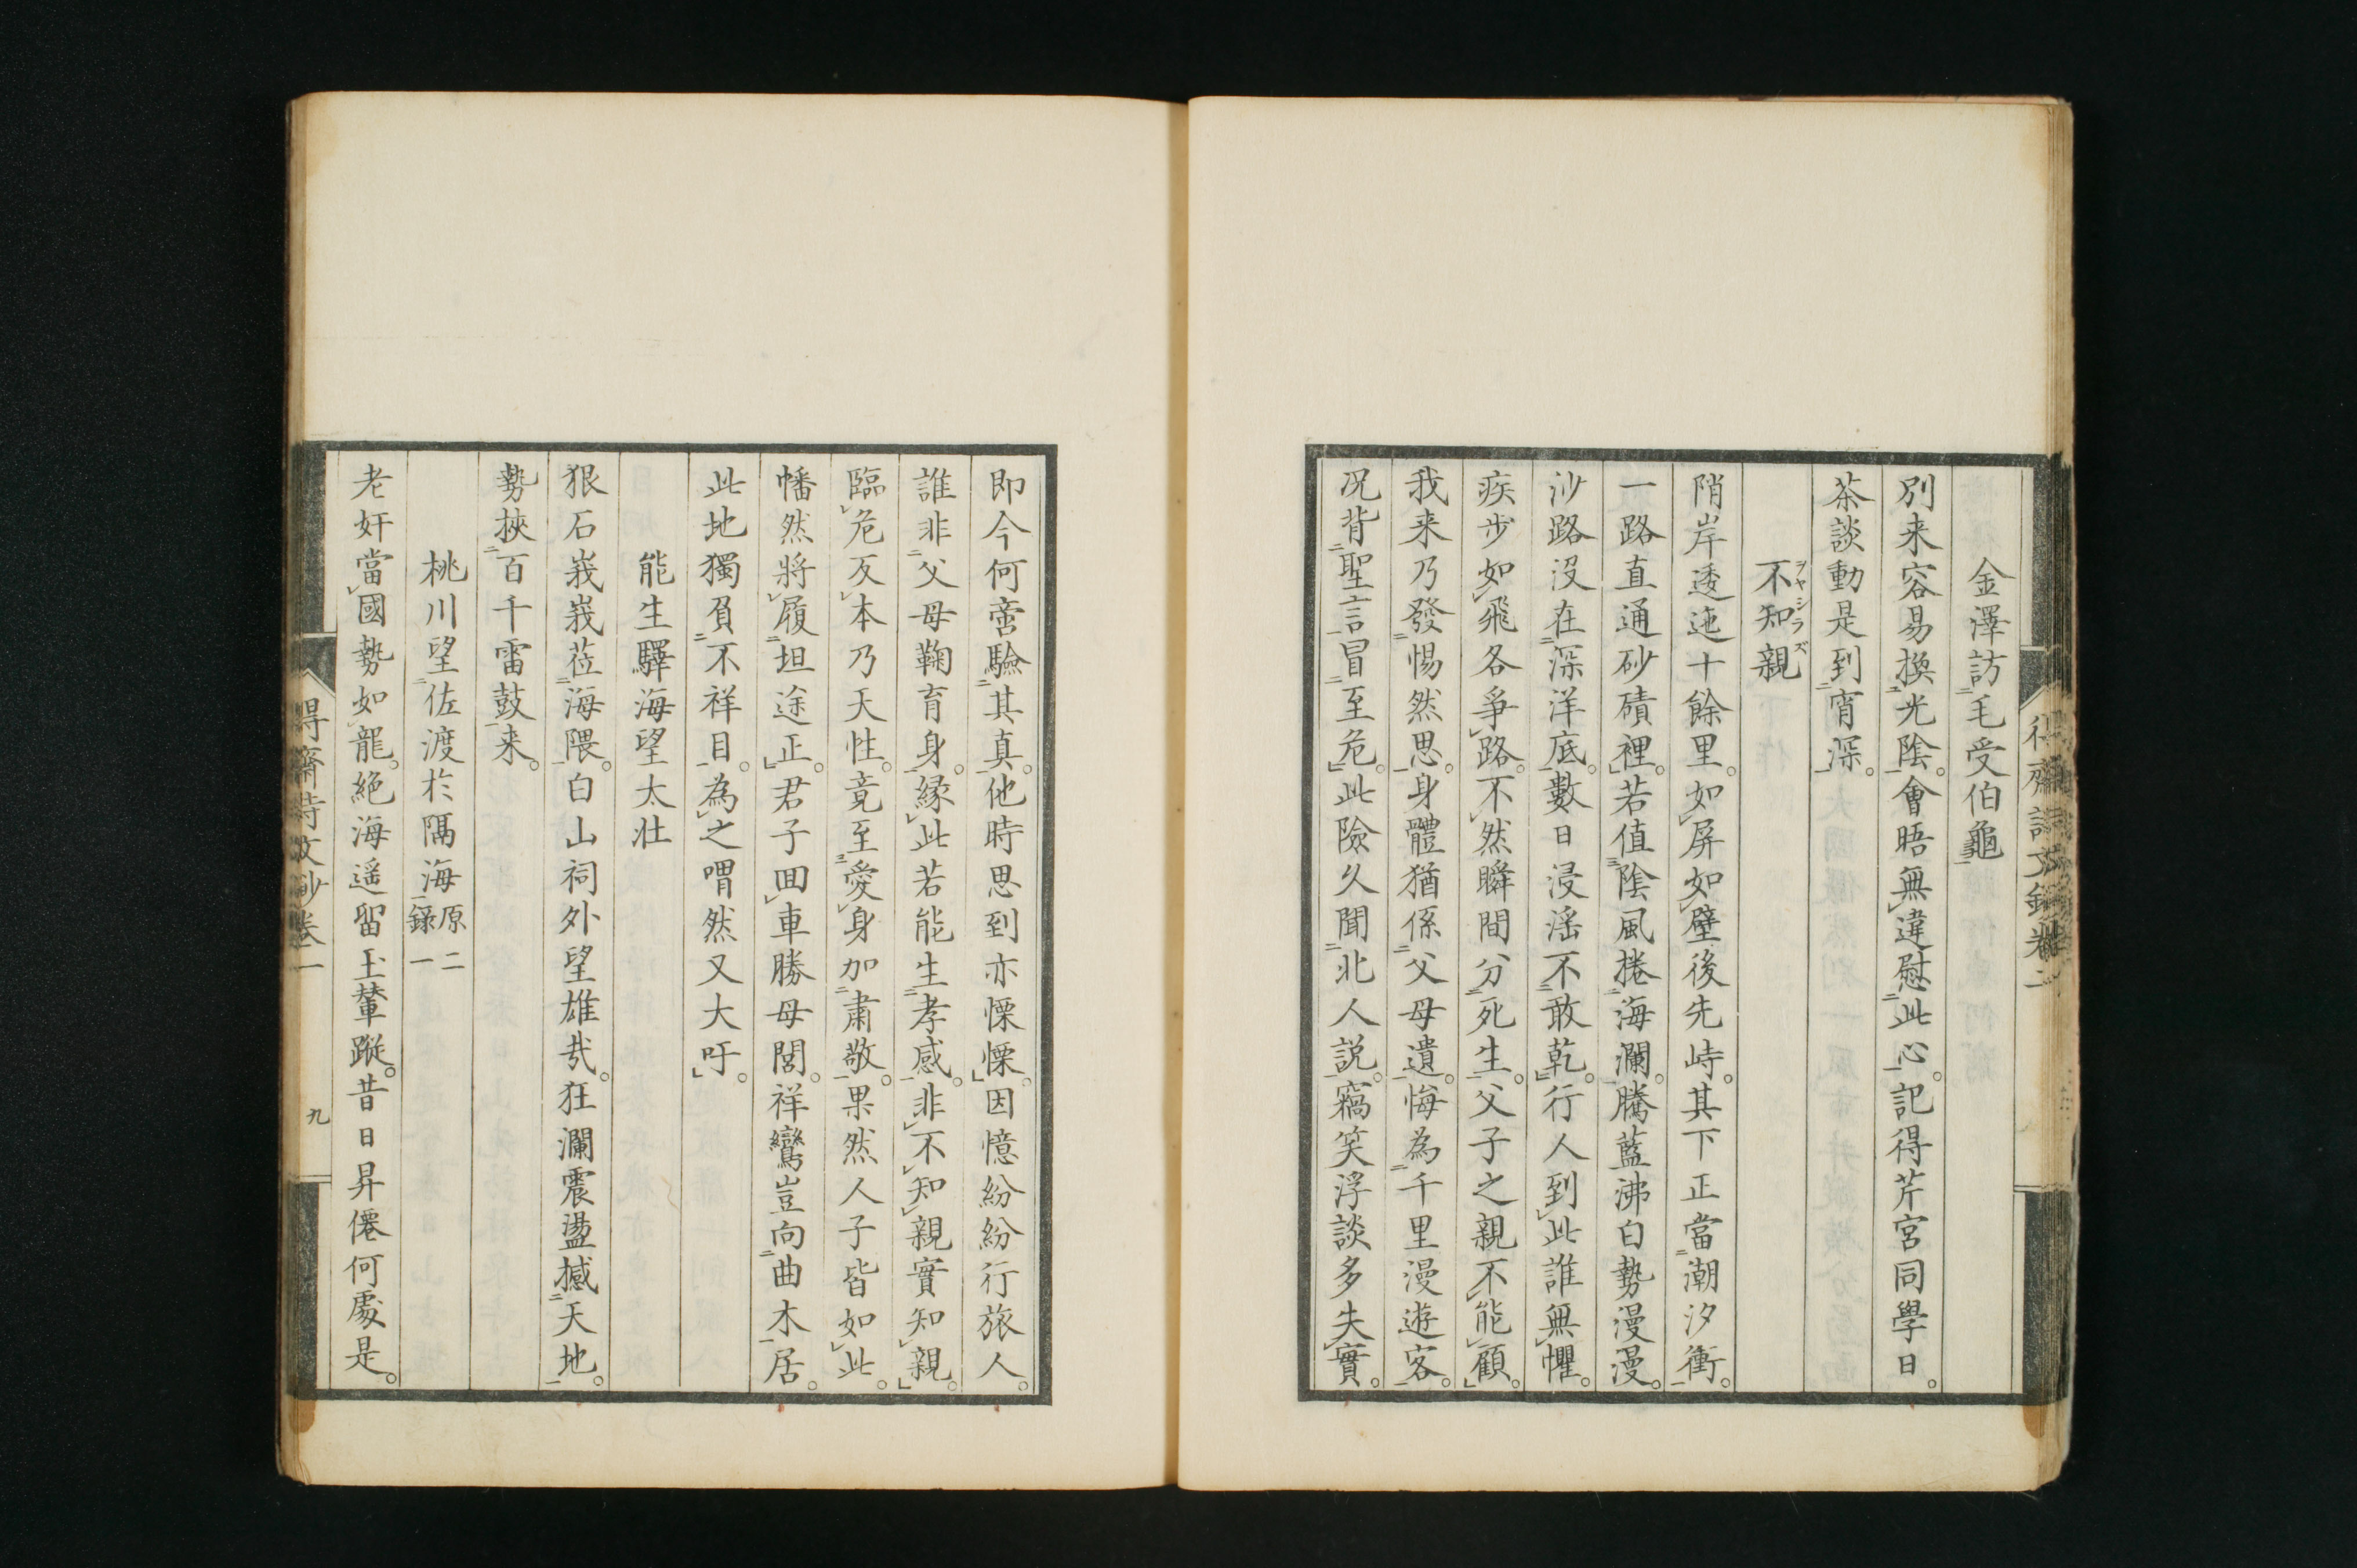 金澤訪毛受伯龜
別来容易換光陰。會晤無違慰此心。記得芹宮同學日。
茶談動是到宵深。
不知親
ヲヤシラズ
陗岸逶迤十餘里。如屏如壁後先峙。其下正當潮汐衝。
一路直通砂磧裡。若值陰風捲海瀾。騰藍沸白勢漫漫。
沙路没在深洋底。數日浸滛不敢乾。行人到此誰無懼。
疾步如飛各爭路。不然瞬間分死生。父子之親不能顧。
我来乃發惕然思。身體猶係父母遺。悔為千里漫遊客。
况背聖言冒至危。此險久聞北人説。竊笑浮談多失實。
即今何啻驗其真。他時思到亦慄慄。因憶紛紛行旅人。
誰非父母鞠育身。縁此若能生孝感。非不知親實知親。
臨危反本乃天性。竟至愛身加肅敬。果然人子皆如此。
幡然將履坦途正。君子囬車勝母閭。祥鸞豈向曲木居。
此地獨負不祥目。為之喟然又大吁。
能生驛海望太壮
狠石峩峩莅海隈。白山祠外望雄哉。狂瀾震盪撼天地。
勢挾百千雷鼓来。
桃川望佐渡於隔海 原二錄一
老奸當國勢如龍。絶海遥畱玉輦蹤。昔日昇僊何處是。
得齋詩文鈔卷一
九